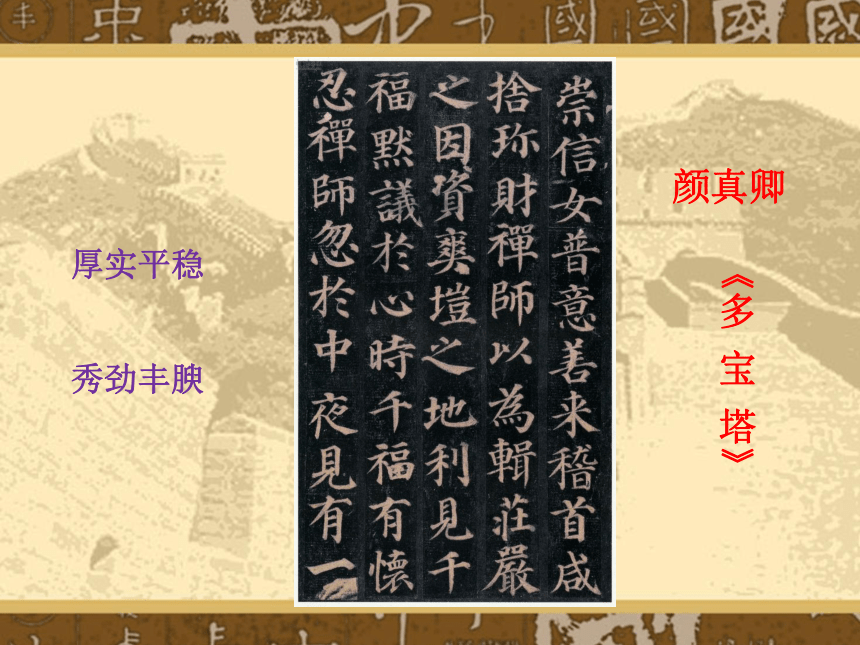 颜真卿
《多宝塔》
崇信女普意善来稽首咸
捨珎財禪師以為輯莊嚴
之因資爽塏之地利見千
福默議於心時千福有懷
忍禪師忽於中夜見有一
厚实平稳
秀劲丰腴